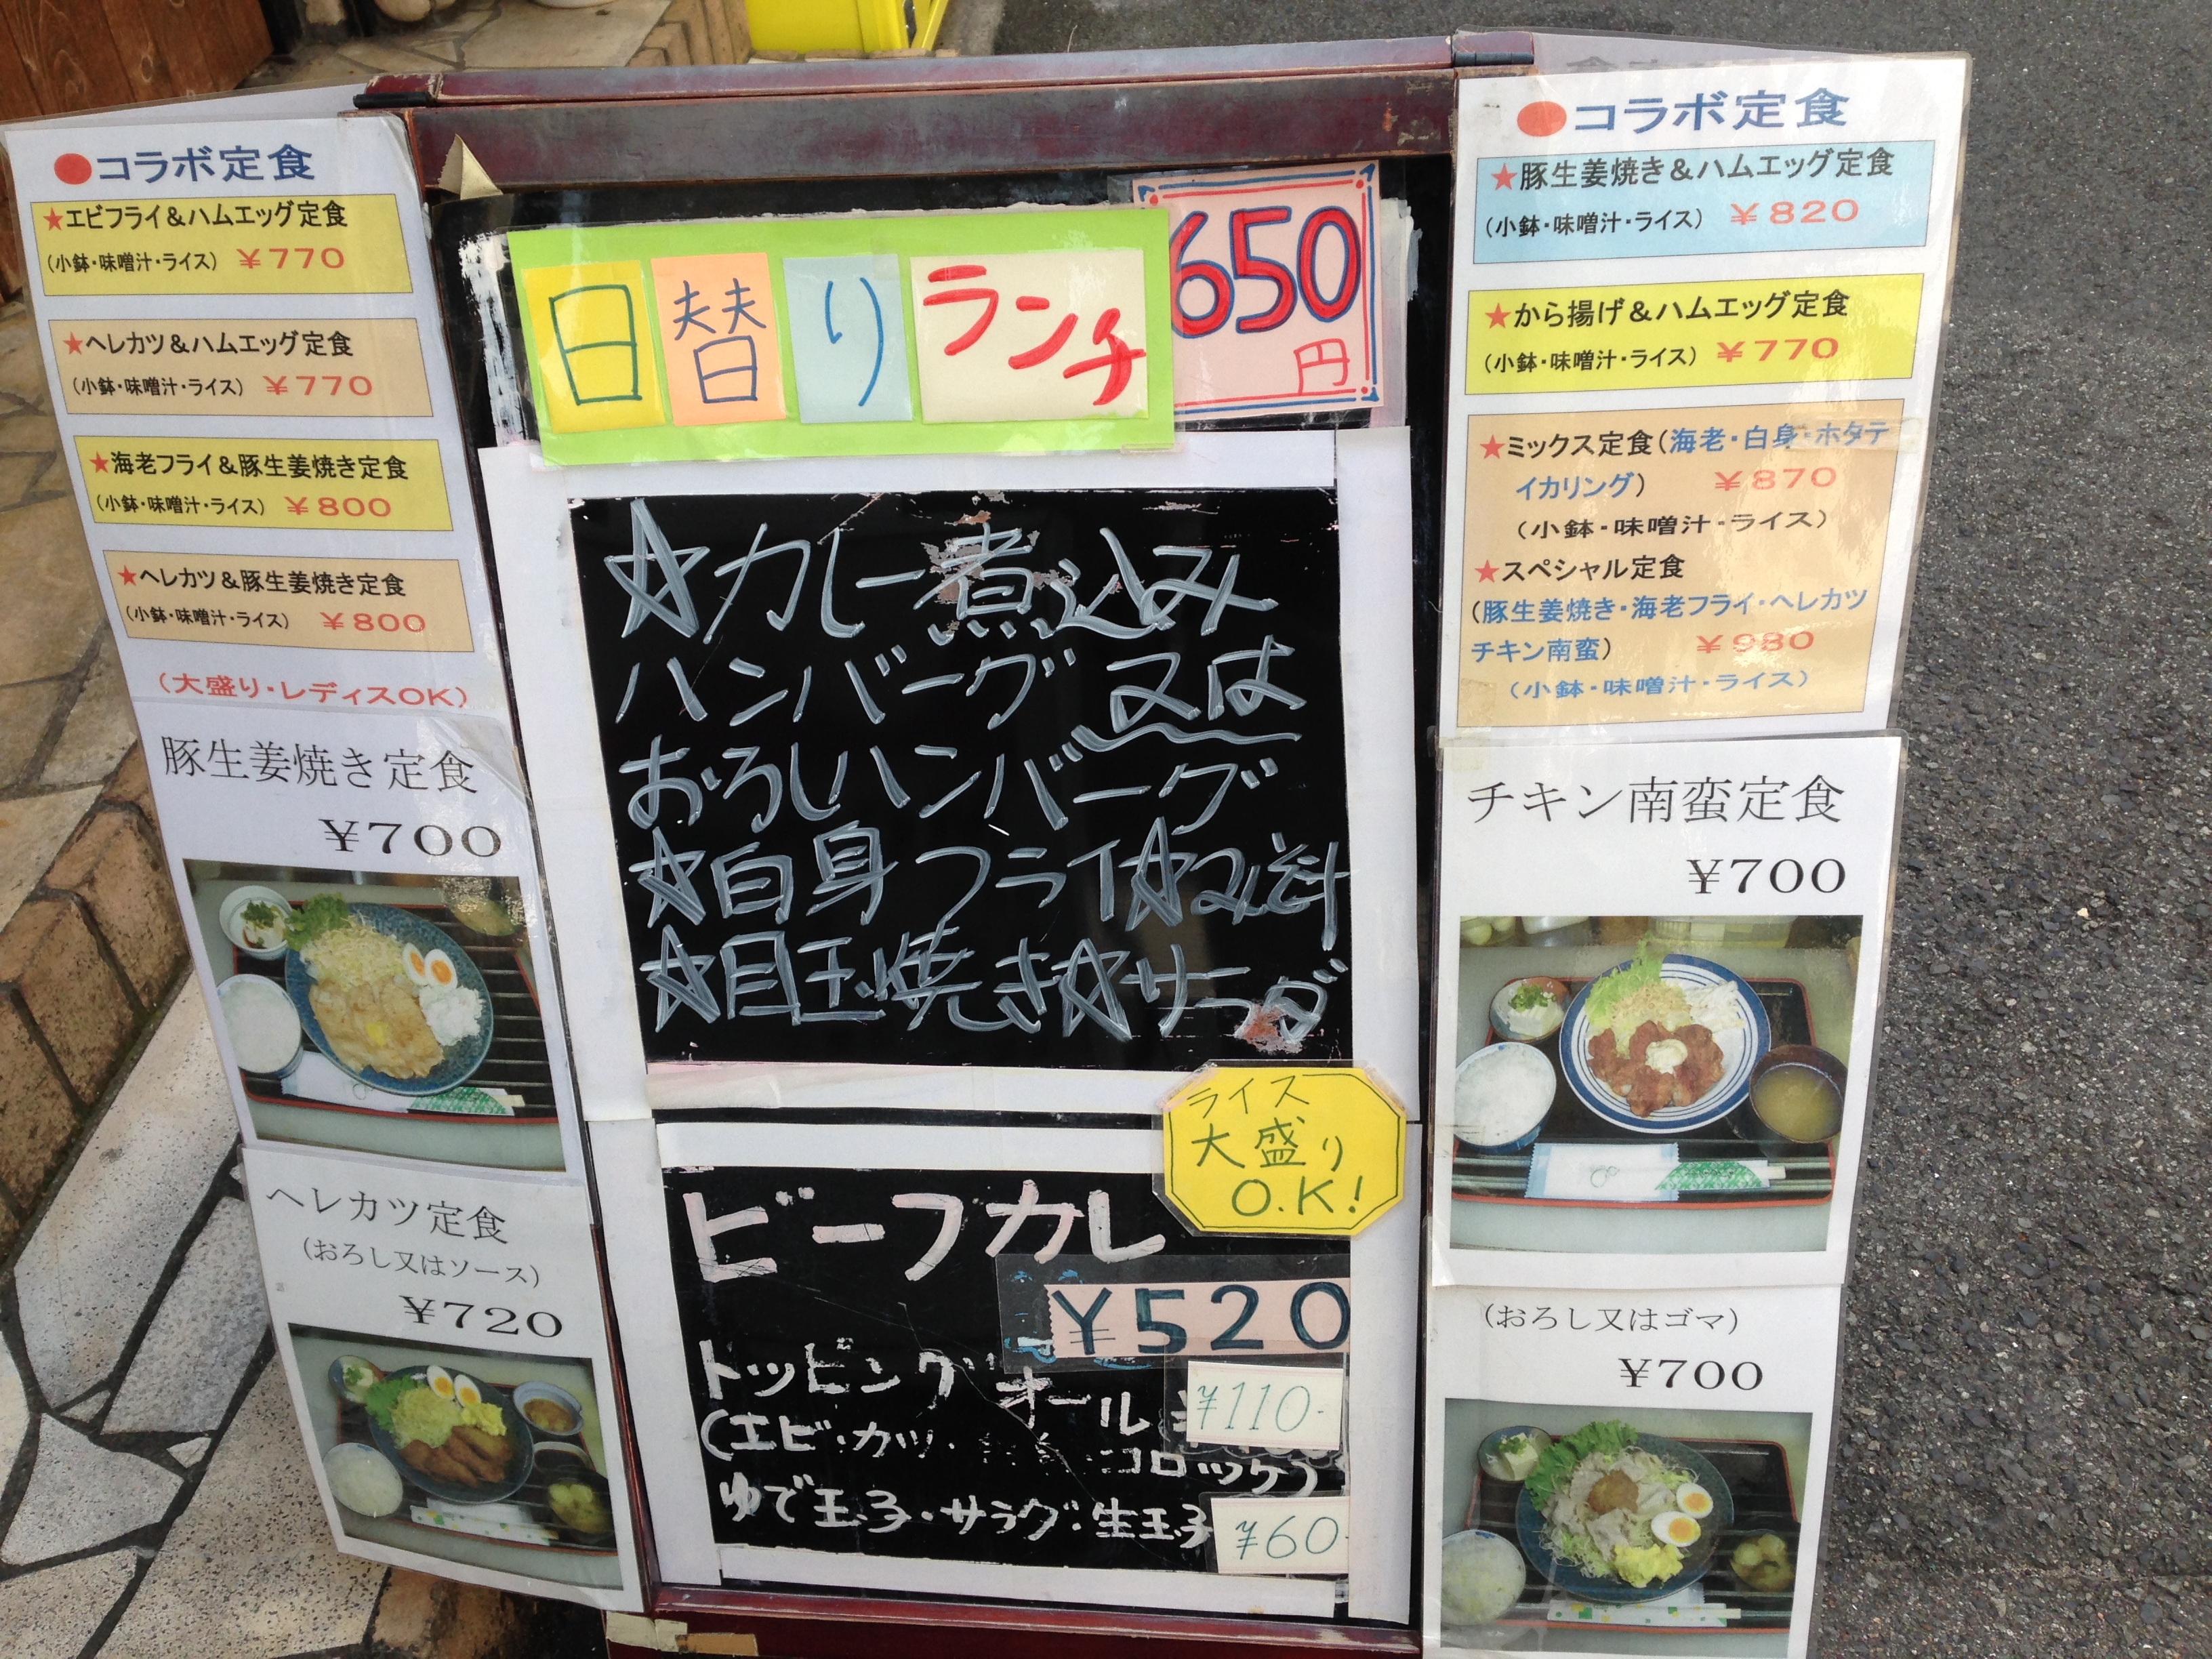 ●コラボ定食
★エビフライ&ハムエッグ定食
(小鉢・味噌汁・ライス) ￥770
★ヘレカツ&ハムエッグ定食
(小鉢・味噌汁・ライス) ￥770
★海老フライ&豚生姜焼き定食
(小鉢・味噌汁・ライス) ￥800
★ヘレカツ&豚生姜焼き定食
(小鉢・味噌汁・ライス) ￥800
(大盛り・レディスOK)
豚生姜焼き定食
￥700
ヘレカツ定食
(おろし又はソース)
￥720
日替りランチ
650
円
☆カレー煮込み
ハンバーグ又は
おろしハンバーグ
☆白身フライ☆みそ汁
☆目玉焼き☆サラダ
ライス
大盛り
O.K!
ビーフカレー
￥520
トッピング オール ¥110-
(エビ・カツ・コロッケ)
ゆで玉子・サラダ・生玉子 ¥60-
●コラボ定食
★豚生姜焼き&ハムエッグ定食
(小鉢・味噌汁・ライス) ￥820
★から揚げ&ハムエッグ定食
(小鉢・味噌汁・ライス) ￥770
★ミックス定食(海老・白身・ホタテ
イカリング) ￥870
(小鉢・味噌汁・ライス)
★スペシャル定食
(豚生姜焼き・海老フライ・ヘレカツ
チキン南蛮) ￥980
(小鉢・味噌汁・ライス)
チキン南蛮定食
￥700
(おろし又はゴマ)
￥700